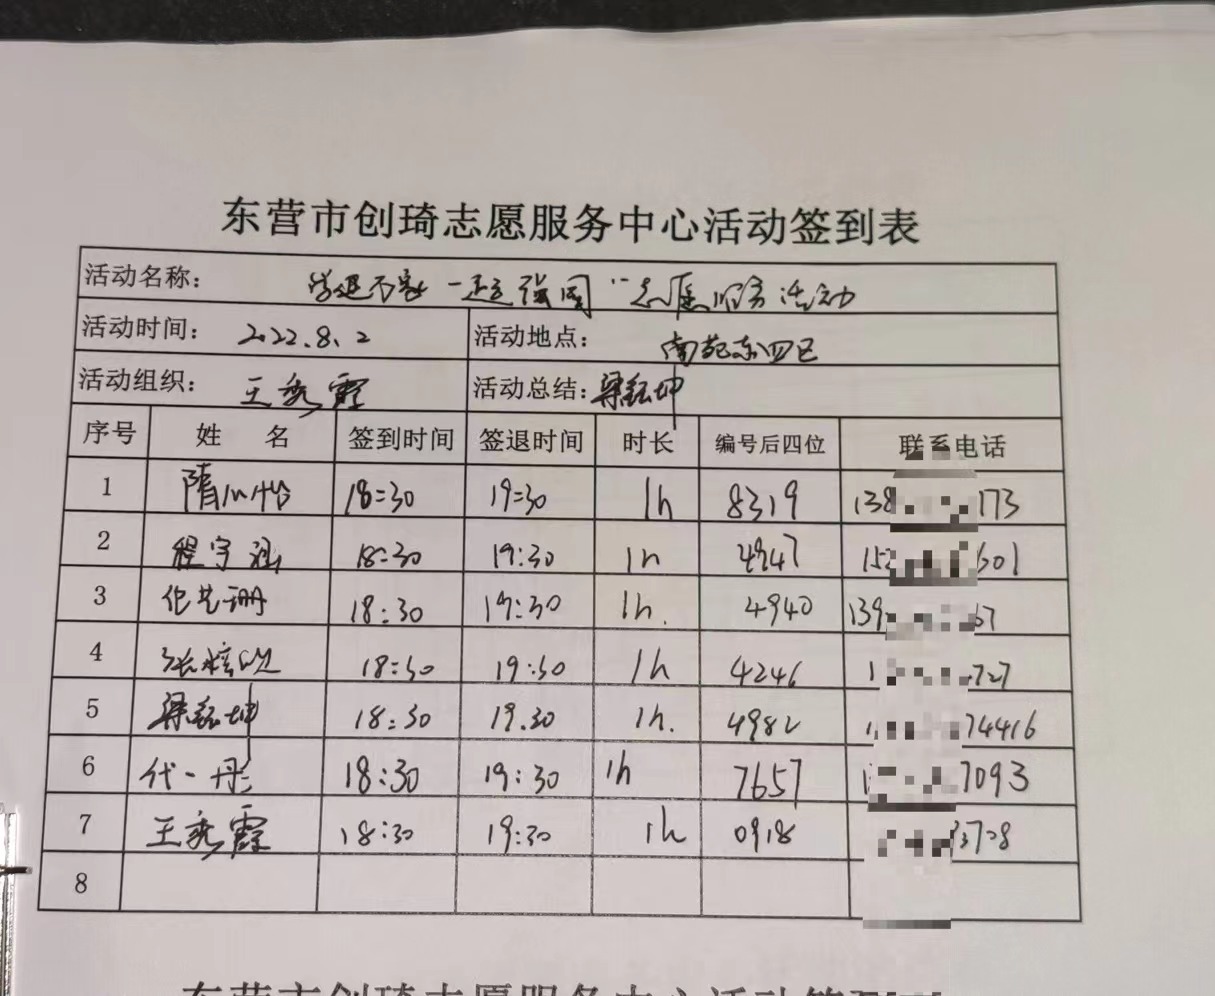 东营市创琦志愿服务中心活动签到表
活动名称： 学思不寂 一起强国"志愿服务活动
活动时间： 2022.8.2 活动地点： 南苑东四区
活动组织： 王秀霞 活动总结： 梁钰坤
序号 姓 名 签到时间 签退时间 时长 编号后四位 联系电话
1 隋心怡 18:30 19:30 1h 8319 138 173
2 程宇涵 18:30 19:30 1h 4947 152 601
3 伦艺珊 18:30 19:30 1h. 4940 139 67
4 张 18:30 19:30 1h 4246 1 727
5 梁钰坤 18:30 19.30 1h. 4982 1 74416
6 代一丹 18:30 19:30 1h 7657 1 7093
7 王秀霞 18:30 19:30 1h 0918 3728
8
东营市创琦志愿服务中心活动签到